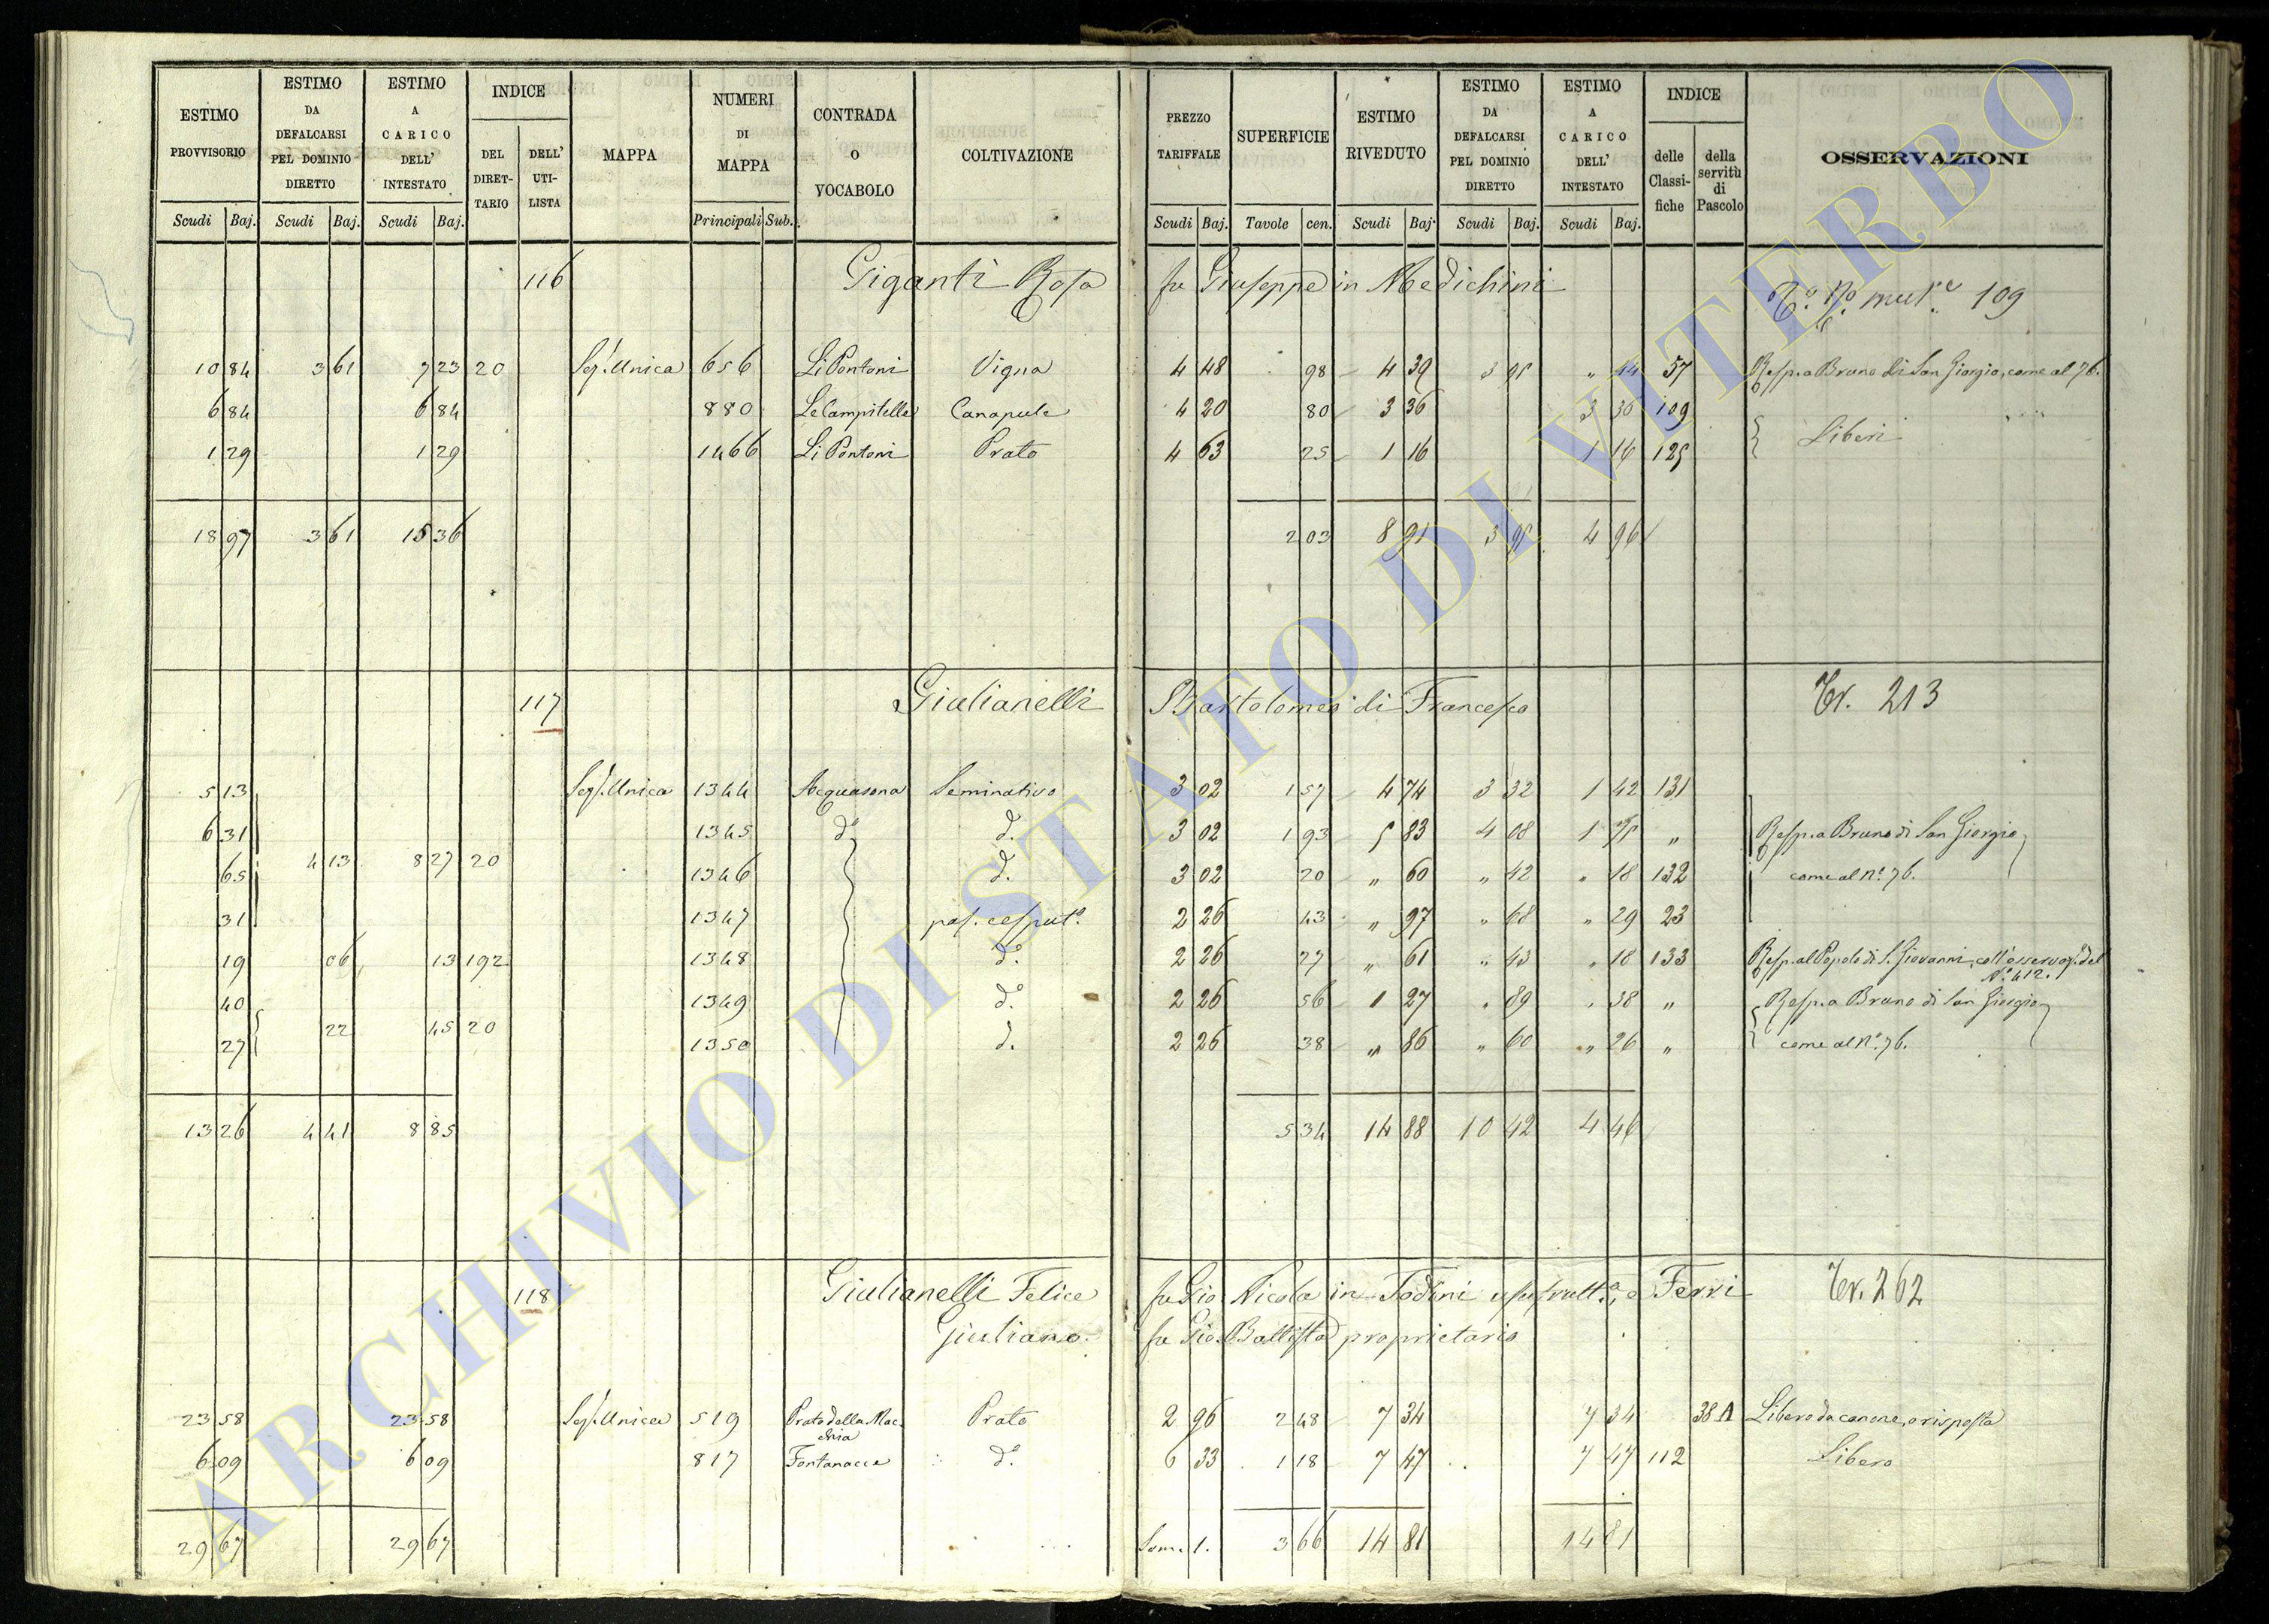 ESTIMO PROVVISORIO | ESTIMO DA DEFALCARSI PEL DOMINIO DIRETTO | ESTIMO A CARICO DELL' INTESTATO | INDICE DEL DIRET-TARIO | DELL' UTI-LISTA | MAPPA | NUMERI DI MAPPA | CONTRADA O VOCABOLO | COLTIVAZIONE | PREZZO TARIFFALE | SUPERFICIE | ESTIMO RIVEDUTO | ESTIMO DA DEFALCARSI PEL DOMINIO DIRETTO | ESTIMO A CARICO DELL' INTESTATO | INDICE delle Classi-fiche | della servitù di Pascolo | OSSERVAZIONI
Scudi Baj. Scudi Baj. Scudi Baj. Principali Sub. Scudi Baj. Tavole cen. Scudi Baj. Scudi Baj. Scudi Baj.
116 Giganti Rosa fu Giuseppe in Medichini 109
10 84 3 61 7 23 20 Sez. Unica 656 Li Pontoni Vigna 4 48 98 4 39 3 95 " 44 57 Resp. a Bruno di San Giorgio, come al 76.
6 84 6 84 880 Le Campitelle Canapule 4 20 80 3 36 3 36 109
1 29 1 29 1466 Li Pontoni Prato 4 63 25 1 16 1 16 125 Liberi
18 97 3 61 15 36 2 03 8 91 3 95 4 96
117 Giulianelli Bartolomeo di Francesco Tr. 213
5 13 Sez. Unica 1344 Acquasona Seminativo 3 02 1 57 4 74 3 32 1 42 131
6 31 1345 d.o d. 3 02 1 93 5 83 4 08 1 75 " Resp. a Bruno di San Giorgio
65 4 13 8 27 20 1346 d. 3 02 20 " 60 " 42 " 18 132 come al N.o 76.
31 1347 pas. cesput.o 2 26 43 " 97 " 68 " 29 23
19 06 13 192 1348 d.o 2 26 27 " 61 " 43 " 18 133 Resp. al Popolo di S. Giovanni, coll'osservaz. del N.o 412.
40 1349 d.o 2 26 56 1 27 " 89 " 38 " Resp. a Bruno di San Giorgio
27 22 45 20 1350 d. 2 26 38 " 86 " 60 " 26 " come al N.o 76.
13 26 4 41 8 85 5 34 14 88 10 42 4 46
118 Giulianelli Felice fu Gio. Nicola in Todini usufrutt.a, e Ferri Tr. 262
Giuliano fu Gio. Battista proprietario
23 58 23 58 Sez. Unica 519 Prato della Mac-chia Prato 2 96 2 48 7 34 7 34 38 A Libero da canone, o risposta
6 09 6 09 817 Fontanacce d.o 6 33 1 18 7 47 7 47 112 Libero
29 67 29 67 3 66 14 81 14 81
ARCHIVIO DI STATO DI VITERBO